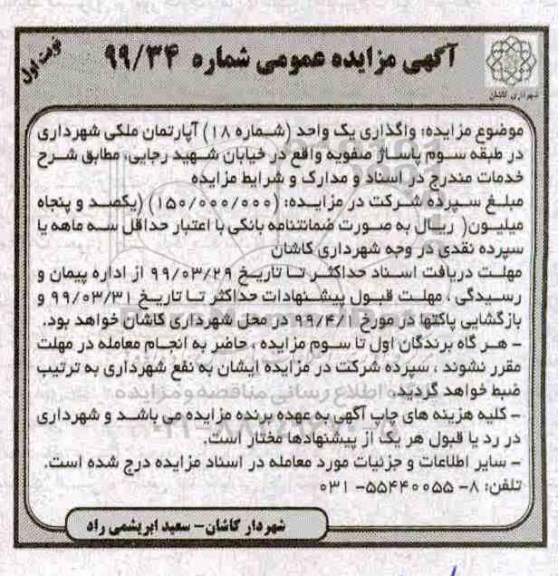 آگهی مزایده عمومی شماره ۹۹/۳۴
نوبت اول
شهرداری کاشان
موضوع مزایده: واگذاری یک واحد (شماره ۱۸) آپارتمان ملکی شهرداری
در طبقه سوم پاساژ صفویه واقع در خیابان شهید رجایی، مطابق شرح
خدمات مندرج در اسناد و مدارک و شرایط مزایده
مبلغ سپرده شرکت در مزایده: (۱۵۰/۰۰۰/۰۰۰) (یکصد و پنجاه
میلیون( ریال به صورت ضمانتنامه بانکی با اعتبار حداقل سه ماهه یا
سپرده نقدی در وجه شهرداری کاشان
مهلت دریافت اسناد حداکثر تا تاریخ ۹۹/۰۳/۲۹ از اداره پیمان و
رسیدگی ، مهلت قبول پیشنهادات حداکثر تا تاریخ ۹۹/۰۳/۳۱ و
بازگشایی پاکتها در مورخ ۹۹/۴/۱ در محل شهرداری کاشان خواهد بود.
- هر گاه برندگان اول تا سوم مزایده ، حاضر به انجام معامله در مهلت
مقرر نشوند ، سپرده شرکت در مزایده ایشان به نفع شهرداری به ترتیب
ضبط خواهد گردید.
- کلیه هزینه های چاپ آگهی به عهده برنده مزایده می باشد و شهرداری
در رد یا قبول هر یک از پیشنهادها مختار است.
- سایر اطلاعات و جزئیات مورد معامله در اسناد مزایده درج شده است.
تلفن: ۸- ۵۵۴۴۰۰۵۵- ۰۳۱
شهردار کاشان- سعید ابریشمی راد